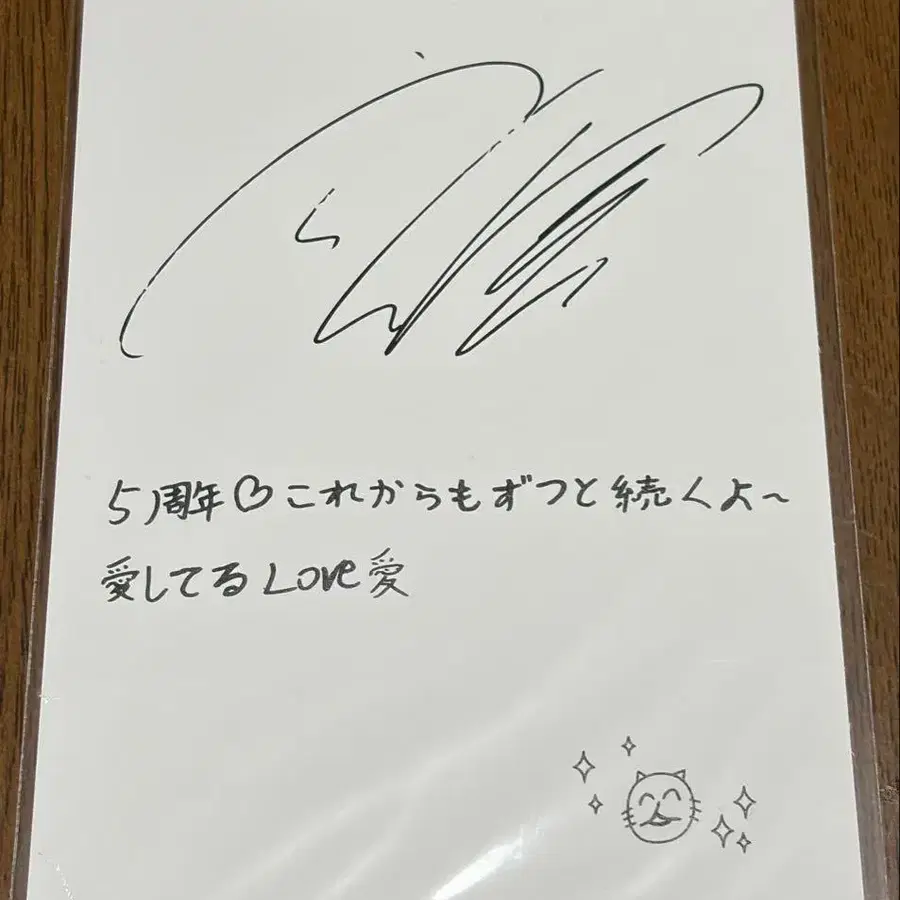 5周年♡これからもずっと続くよ~
愛してるLove愛